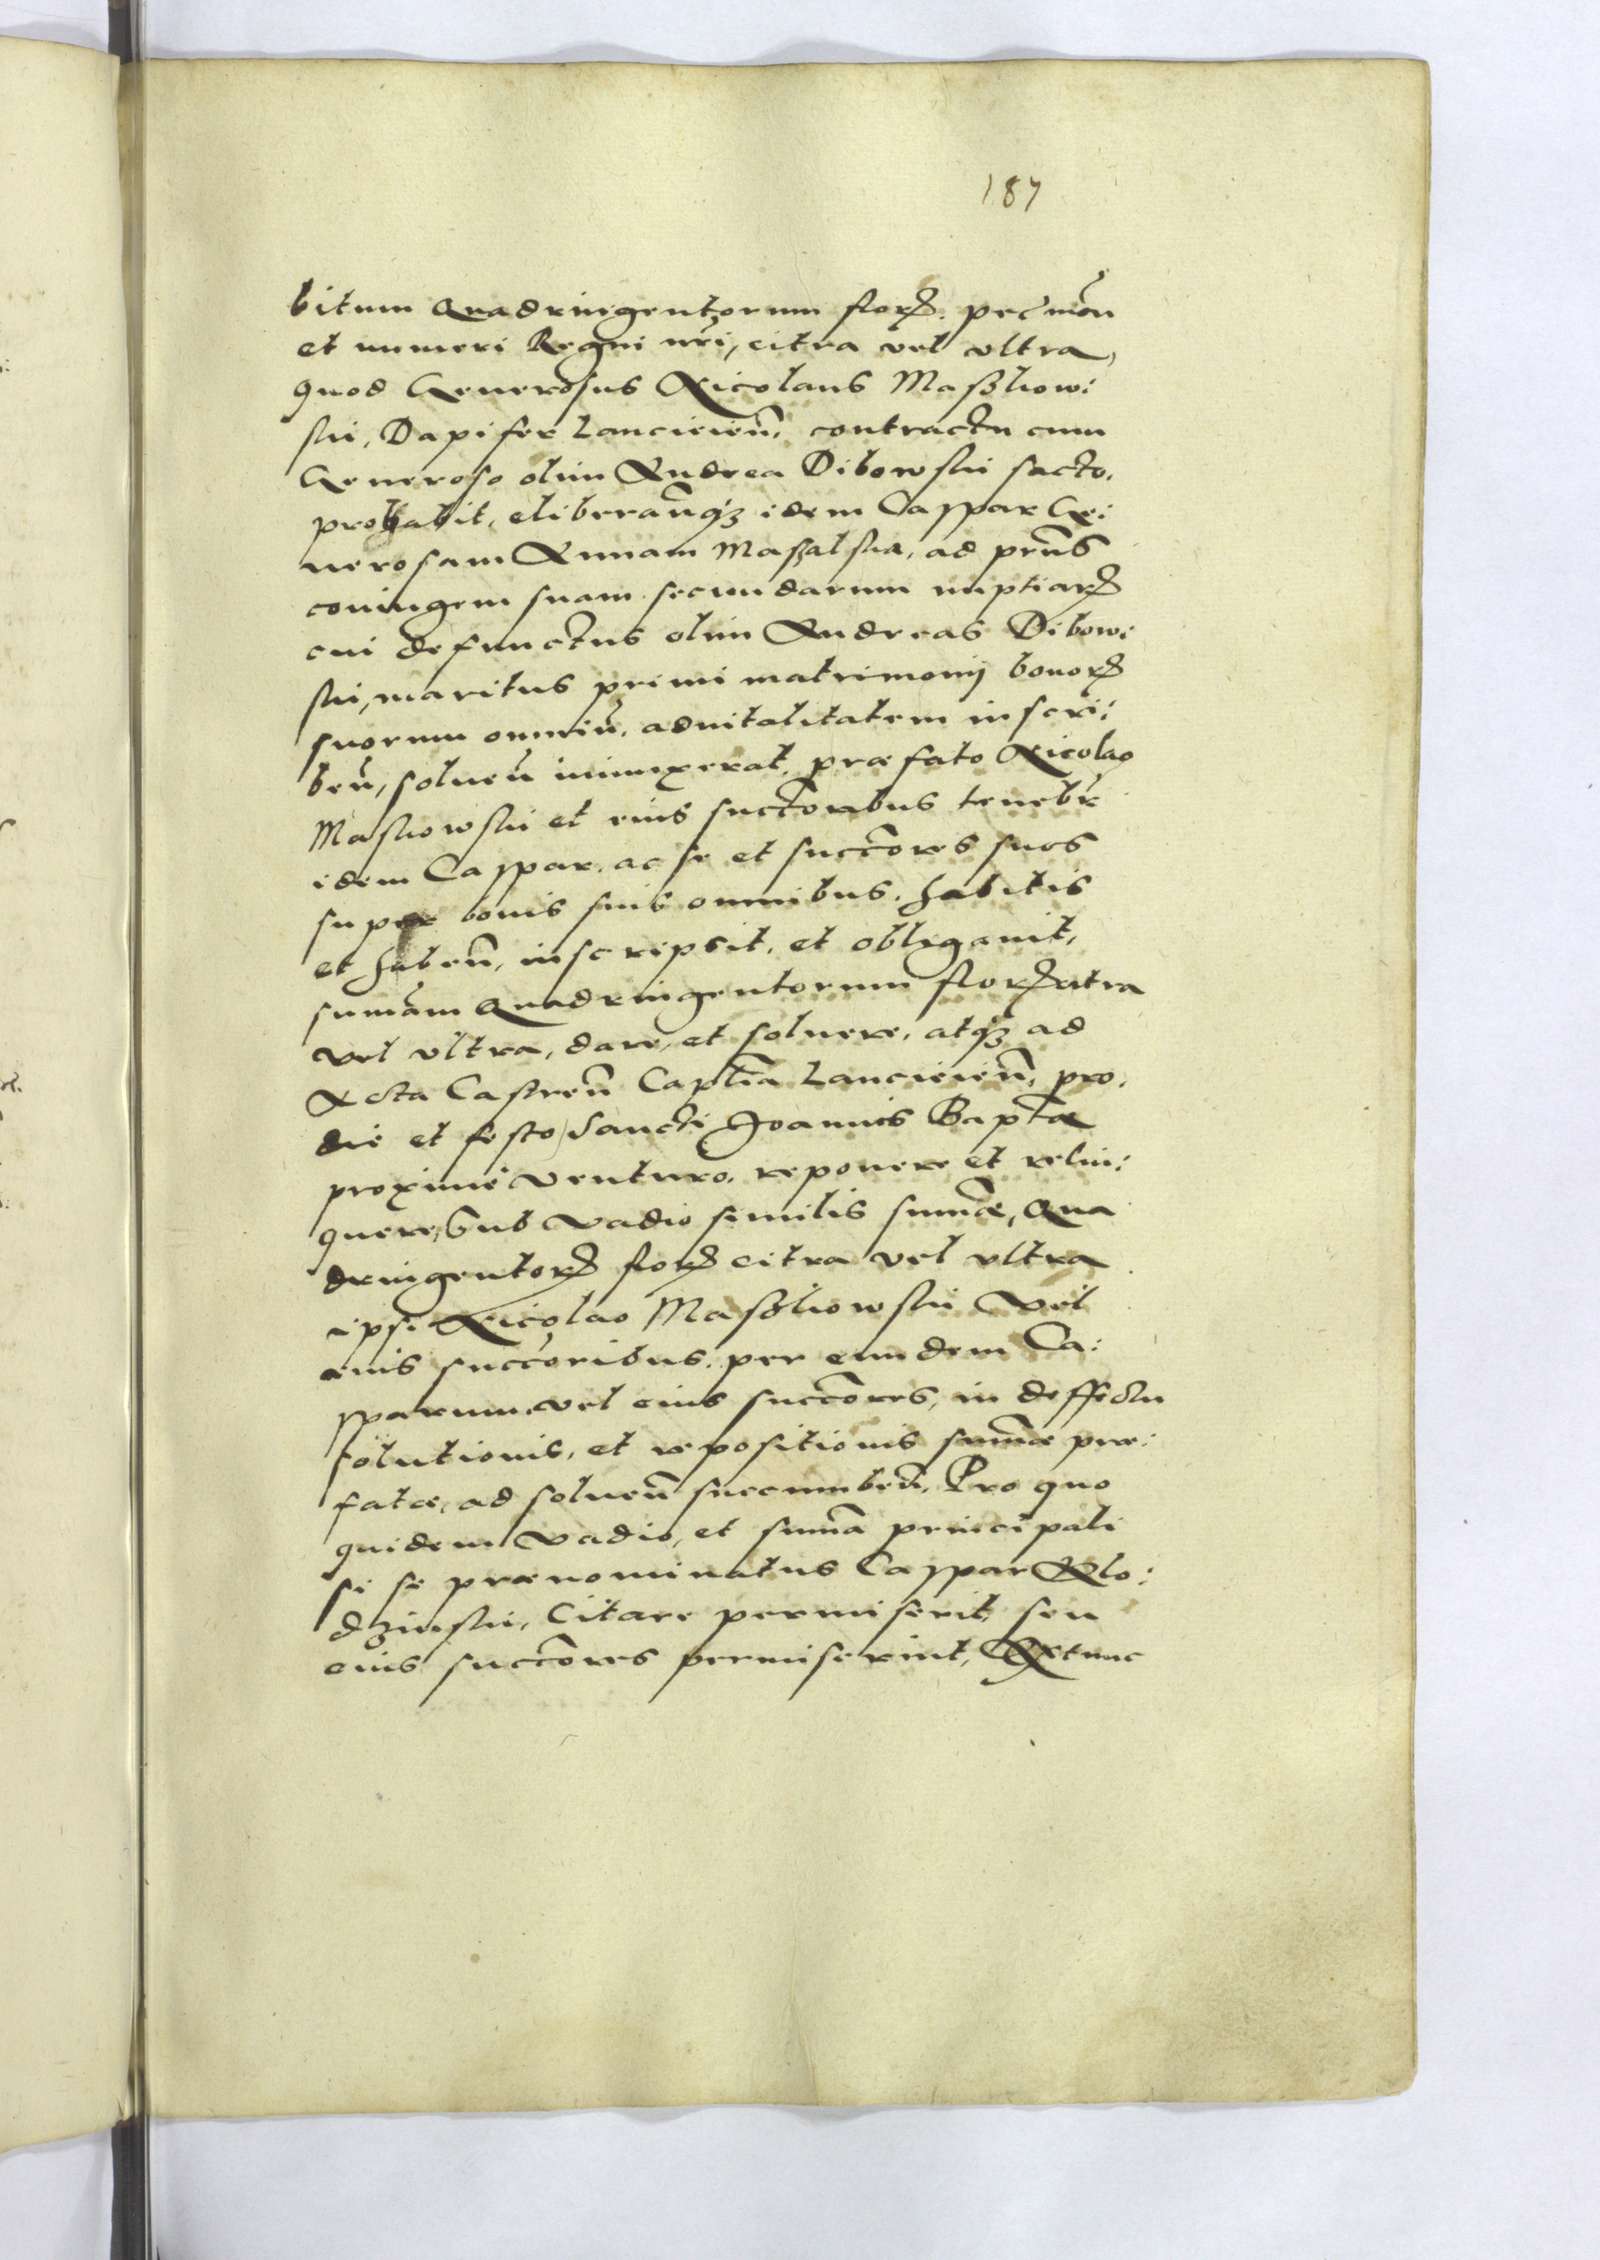 187
bitum Quadringentorum florꝝ. pec̄ mōn
et numeri Regni nrī, citra vel vltra,
quod Generosus Nicolaus Maszliow:
ski, Dapifer Lancicieñ, contractu cum
Generoso olim Andrea Dibowski facto,
probabit, eliberañqꝫ idem Caspar Ge:
nerosam Annam Maszalska, ad prñs
coniugem suam secundarum nuptiarꝝ
cui defunctus olim Andreas Dibow:
ski, maritus primi matrimonij bonorꝝ
suorum omniũ, aduitalitatem inscri:
beñ, solueñ iniunxerat, præfato Nicolao
Masliowski et eius succ̄toribus tenebr̃
idem Caspar, ac se et succ̄ores suos
super bonis suis omnibus, habitis
et habeñ, inscripsit, et obligauit,
sum̃am Quadringentorum florꝝ citra
vel vltra, dare, et soluere, atqꝫ ad
Acta Castreñ Capĩlia Lancicieñ, pro,
die et festo Sancti Joannis Bapt̃æ
proxime venturo, reponere et relin:
quere, sub vadio similis sum̃æ, Qua
dringentorꝝ florꝝ citra vel vltra
ipsi Nicolao Maszliowski vel
eius succ̄oribus, per eundem Ca:
sparum, vel eius succ̄ores, in deffectu
solutionis, et repositionis sum̃æ præ:
fatæ, ad solueñ succumbeñ, Pro quo
quidem vadio, et sum̃a principali
si se prænominatus Caspar Klo:
dzinski, Citare permiserit, seu
eius succ̄ores permiserint, Extunc